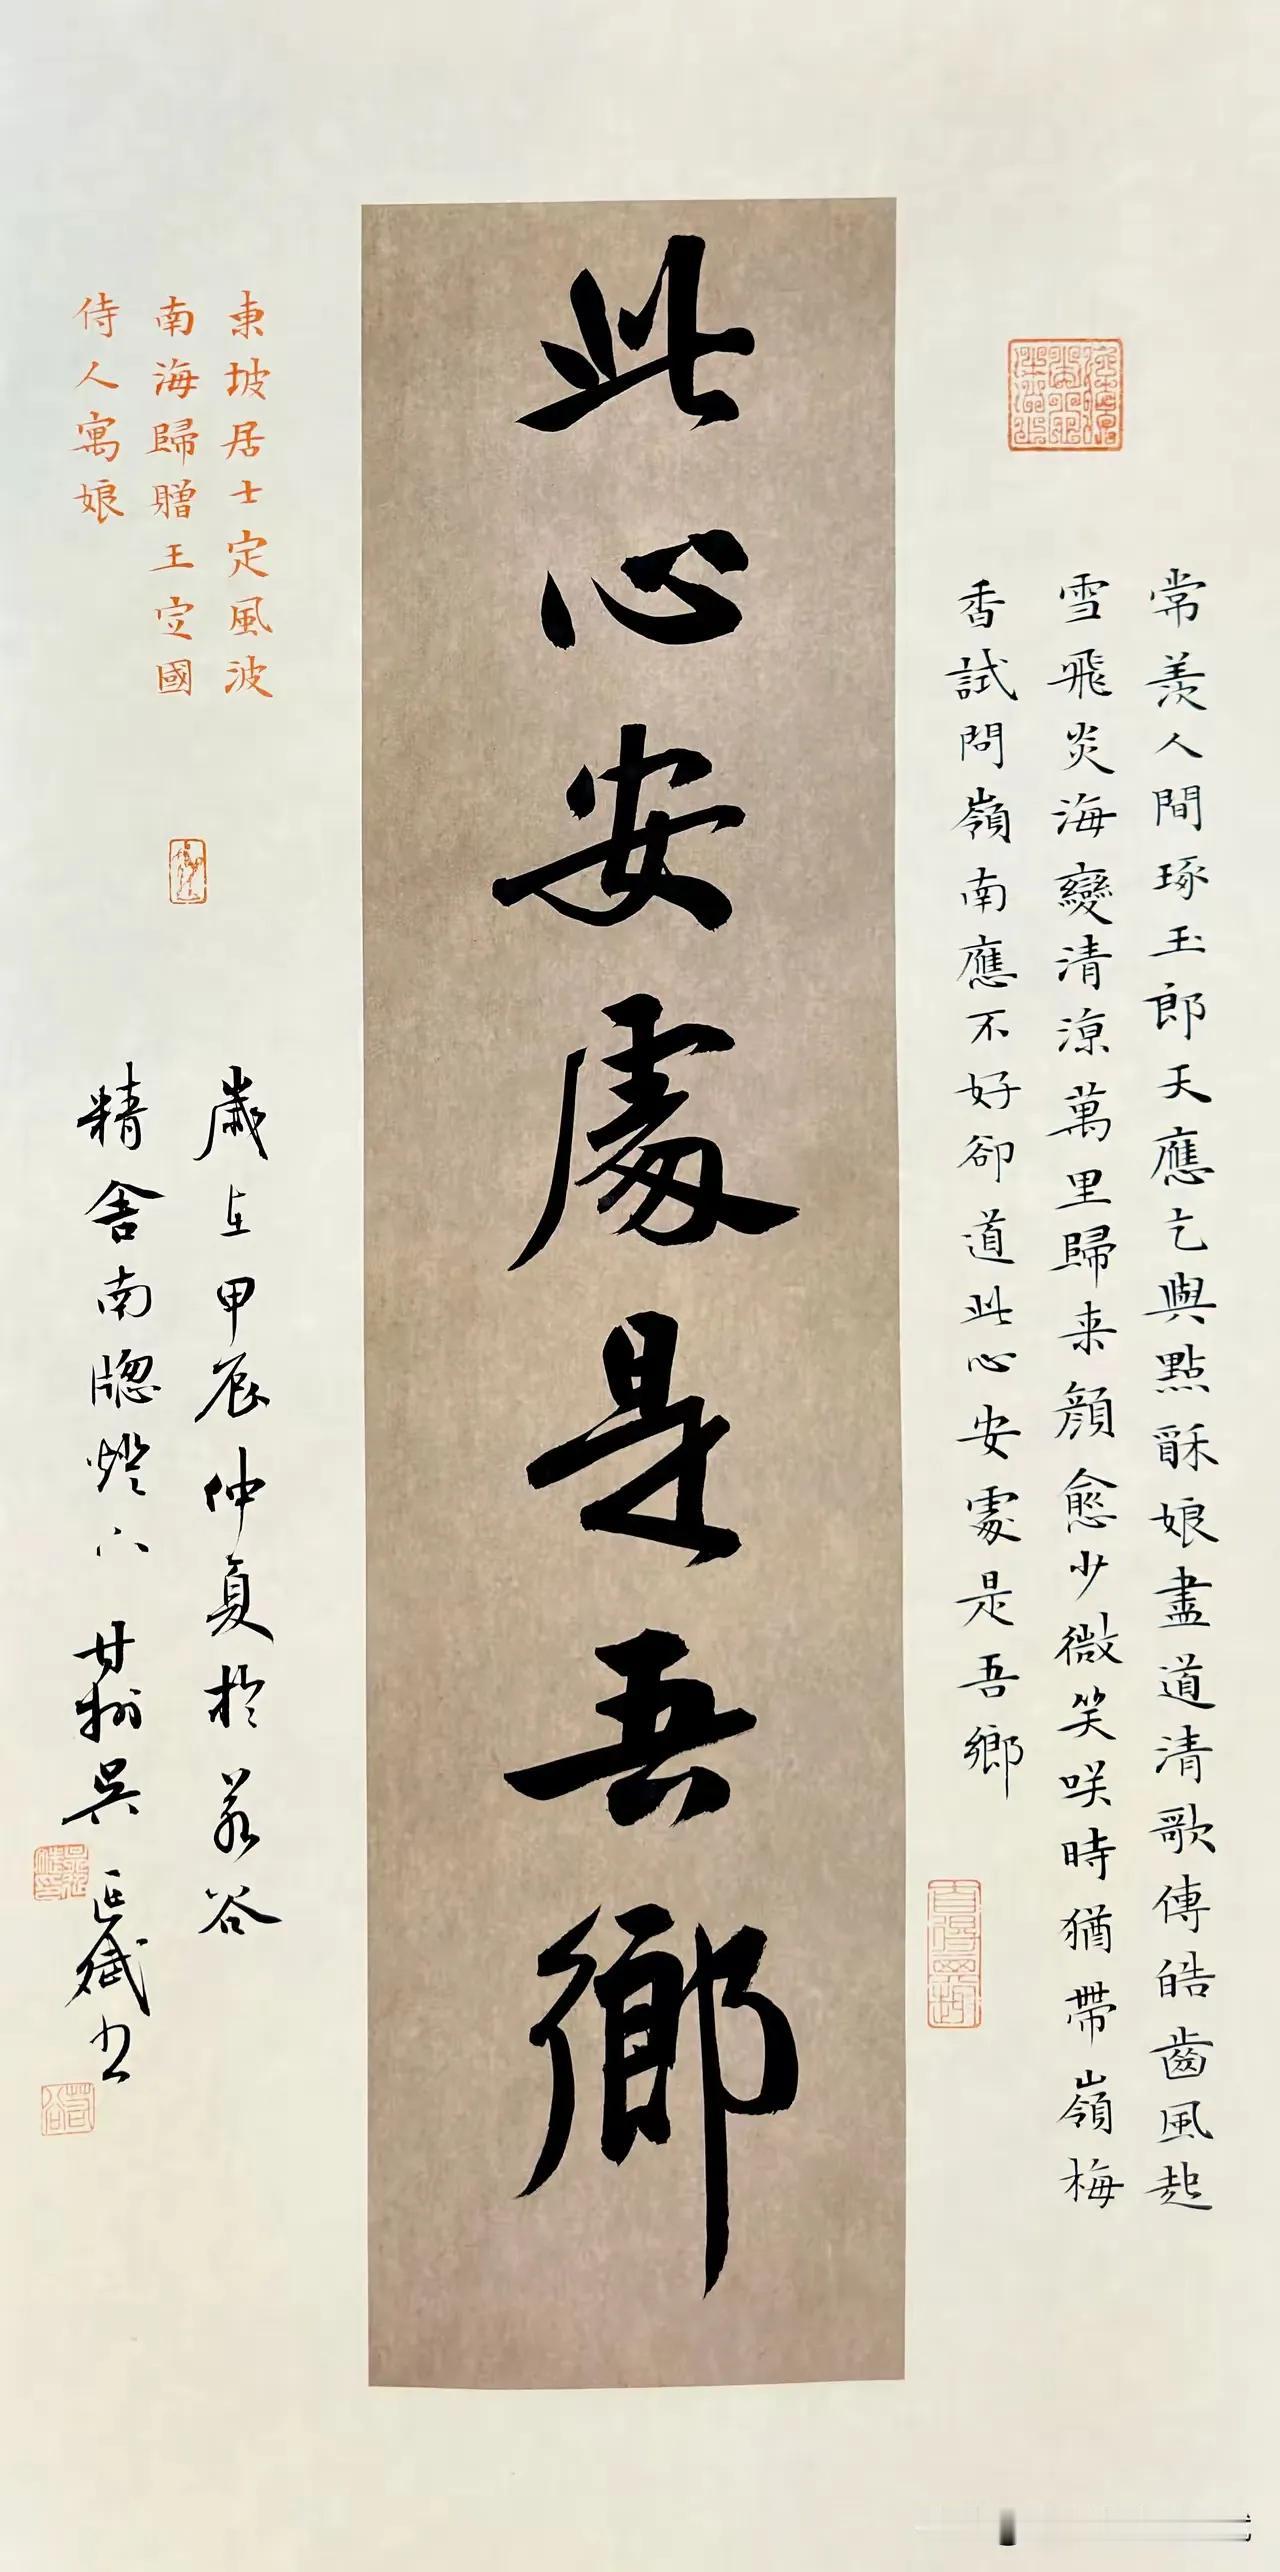 常羨人間琢玉郎天應乞與點酥娘盡道清歌傳皓齒風起
雪飛炎海變清涼萬里歸来顏愈少微笑咲時猶帶嶺梅
香試問嶺南應不好卻道此心安處是吾鄉
此心安處是吾鄉
東坡居士定風波
南海歸贈王定國
侍人寓娘
歲在甲辰仲夏於若谷
精舍南牕燈下甘州吳正斌书
若谷